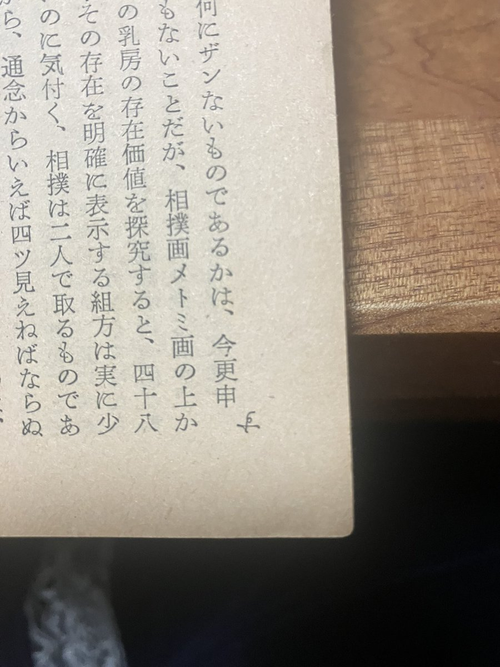 何にザンないものであるかは、今更申す
もないことだが、相撲画メトミ画の上か
の乳房の存在価値を探究すると、四十八
その存在を明確に表示する組方は実に少
のに気付く、相撲は二人で取るものであ
ら、通念からいえば四ツ見えねばならぬ